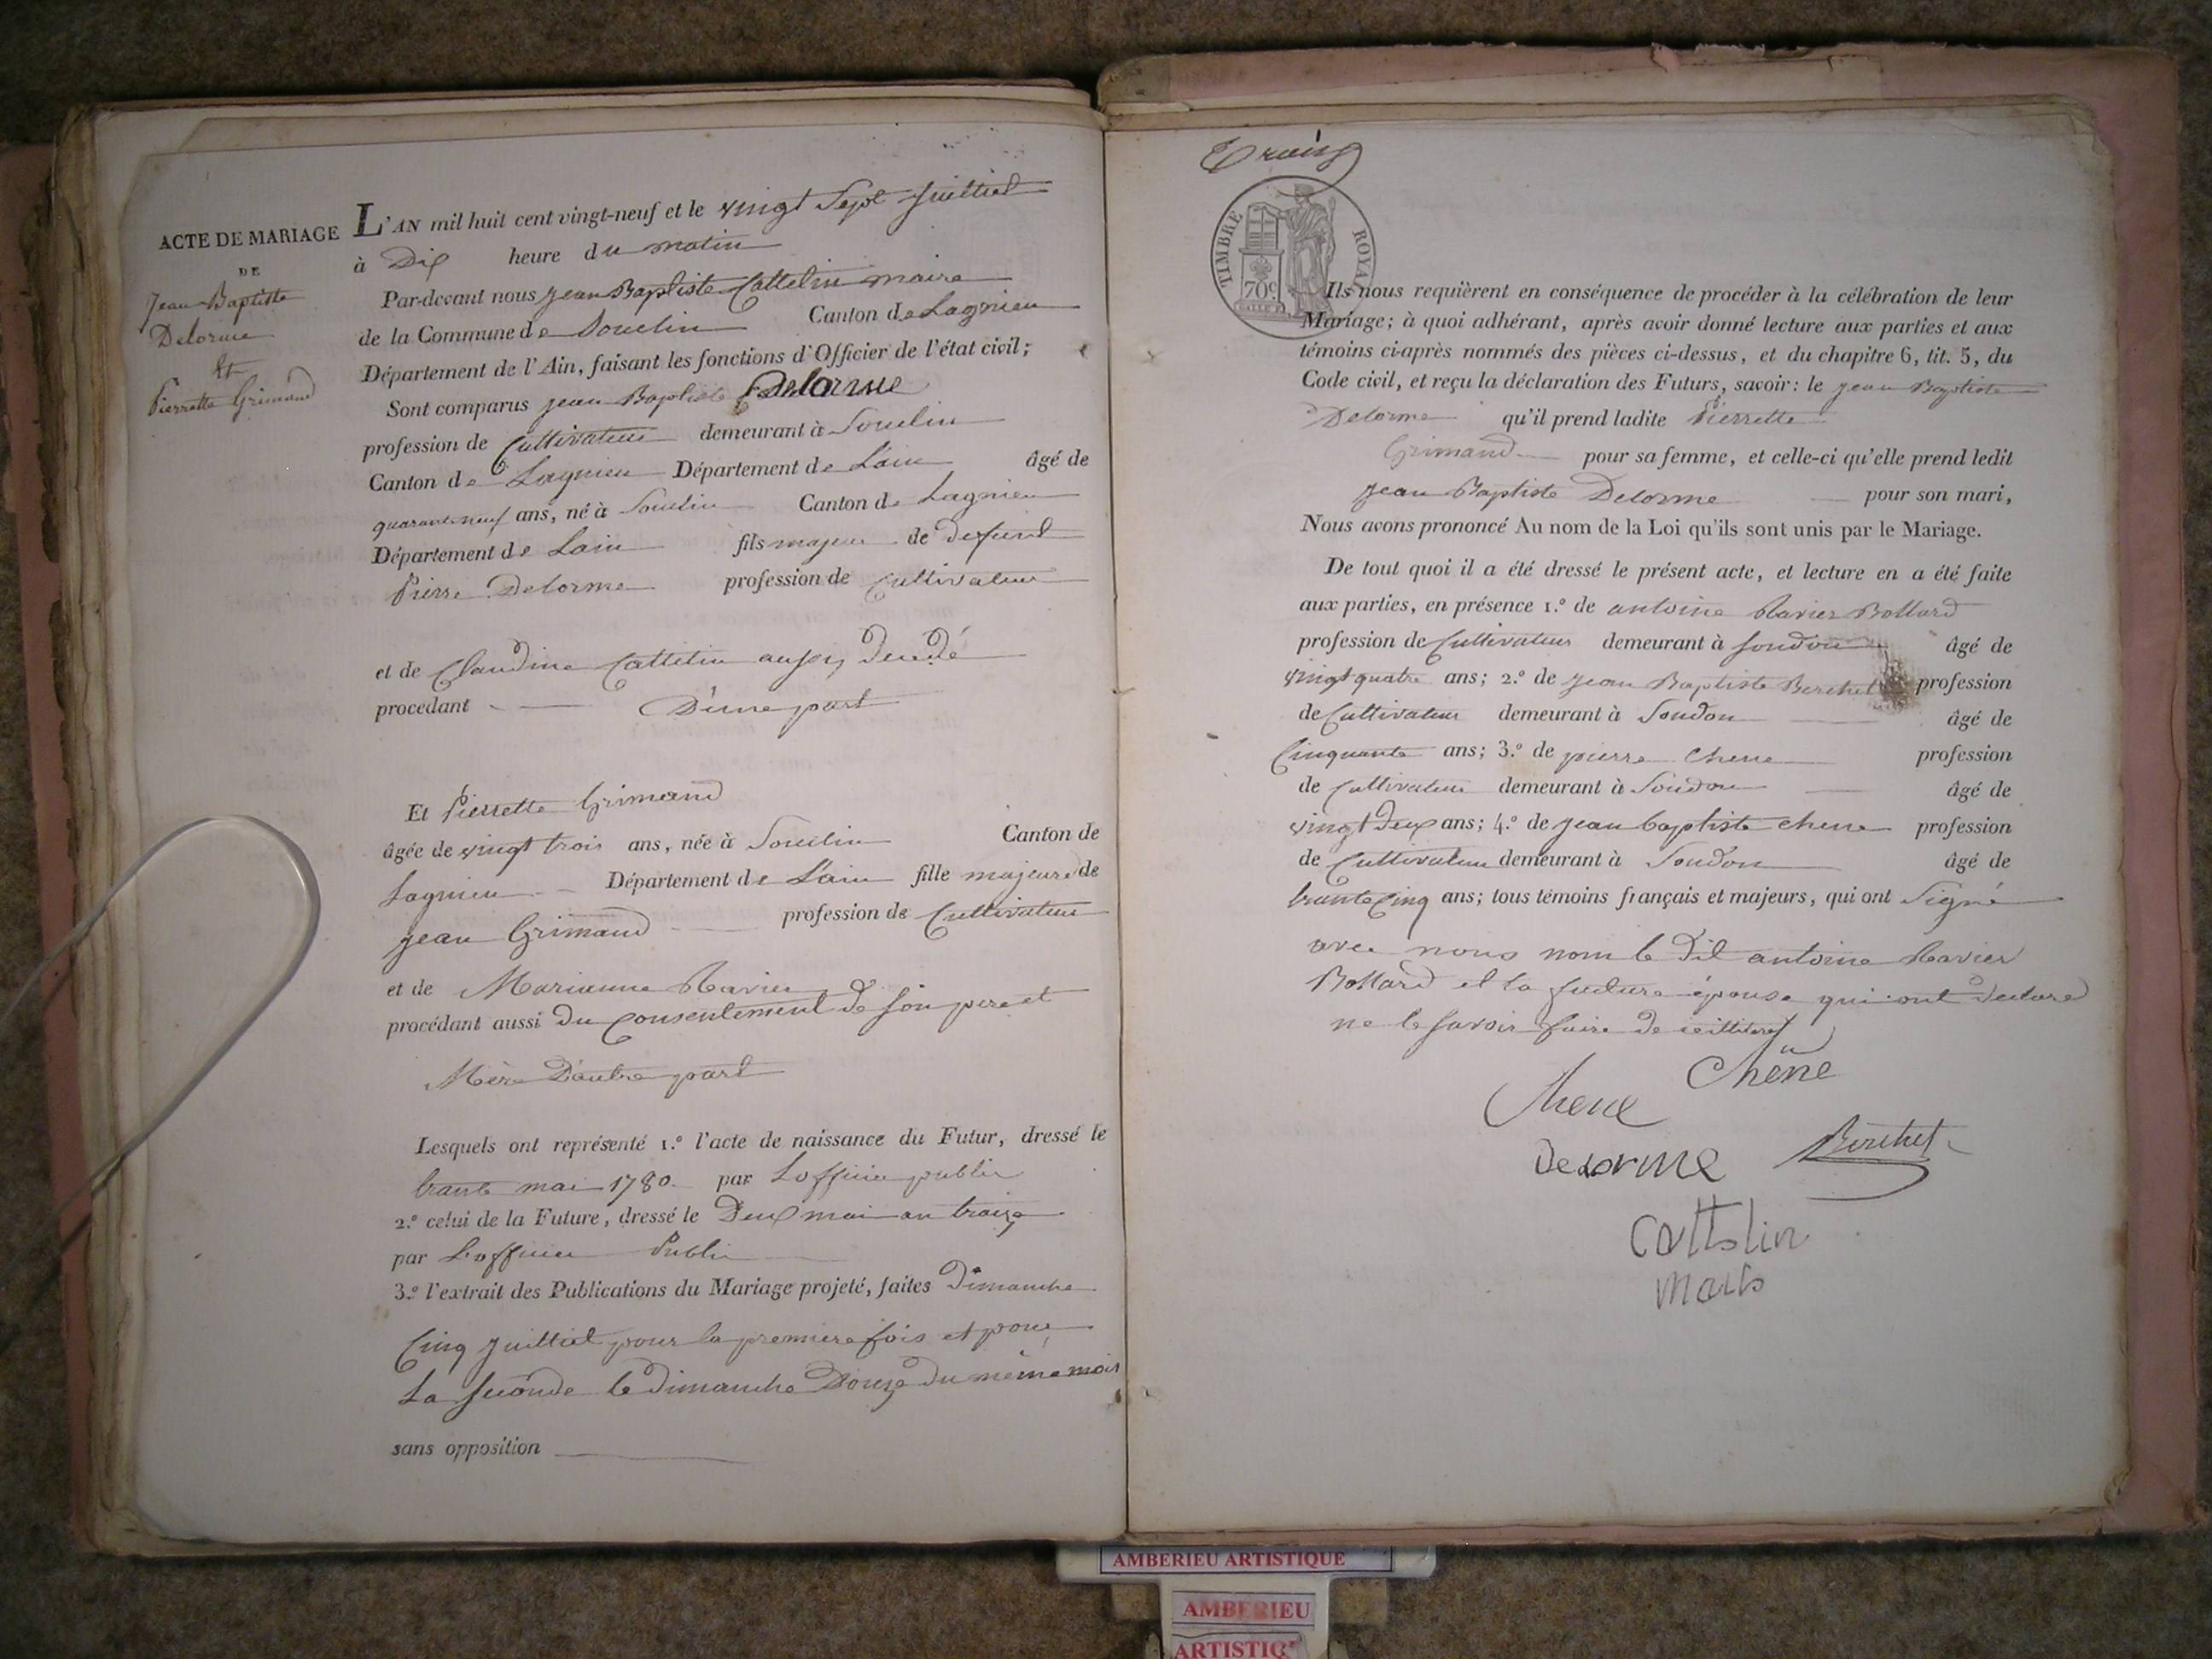 ACTE DE MARIAGE
DE
Jean Baptiste
Delorme
Et
Pierrette Grimand
L'AN mil huit cent vingt-neuf et le vingt Sept Juilliet
à Dix heure du matin
Par-devant nous Jean Baptiste Cattelin maire
de la Commune de Souclin Canton de Lagnieu
Département de l'Ain, faisant les fonctions d'Officier de l'état civil;
Sont comparus Jean Baptiste Delorme
profession de Cultivateur demeurant à Souclin
Canton de Lagnieu Département de Lain âgé de
quarante neuf ans, né à Souclin Canton de Lagnieu
Département de Lain fils majeur de defunt
Pierre Delorme profession de Cultivateur
et de Claudine Cattelin aussy decedé
procedant D'une part
Et Pierrette Grimand
âgée de vingt trois ans, née à Souclin Canton de
Lagnieu Département de Lain fille majeure de
Jean Grimand profession de Cultivateur
et de Marianne Ravier
procédant aussi du Consentement de son pere et
Mère D'autre part
Lesquels ont représenté 1.º l'acte de naissance du Futur, dressé le
trante mai 1780 par Lofficier public
2.º celui de la Future, dressé le Deux mai an traize
par Lofficier Public
3.º l'extrait des Publications du Mariage projeté, faites Dimanche
Cinq Juilliet pour la premiere fois et pour
La seconde le dimanche Douze du même mois
sans opposition
Traize
TIMBRE ROYAL
70c
Ils nous requièrent en conséquence de procéder à la célébration de leur
Mariage; à quoi adhérant, après avoir donné lecture aux parties et aux
témoins ci-après nommés des pièces ci-dessus, et du chapitre 6, tit. 5, du
Code civil, et reçu la déclaration des Futurs, savoir: le Jean Baptiste
Delorme qu'il prend ladite Pierrette
Grimand pour sa femme, et celle-ci qu'elle prend ledit
Jean Baptiste Delorme pour son mari,
Nous avons prononcé Au nom de la Loi qu'ils sont unis par le Mariage.
De tout quoi il a été dressé le présent acte, et lecture en a été faite
aux parties, en présence 1.º de antoine Ravier Bollard
profession de Cultivateur demeurant à Soudon âgé de
vingt quatre ans; 2.º de Jean Baptiste Berthet profession
de Cultivateur demeurant à Soudon âgé de
Cinquante ans; 3.º de pierre Chene profession
de Cultivateur demeurant à Soudon âgé de
vingt deux ans; 4.º de Jean baptiste chene profession
de Cultivateur demeurant à Soudon âgé de
trante Cinq ans; tous témoins français et majeurs, qui ont Signé
avec nous non le dit antoine Ravier
Bollard et la future épouse qui ont declared
ne le savoir faire de
Chêne
Chene
Delorme Berthet
Cattelin
maire
AMBERIEU ARTISTIQUE
AMBERIEU
ARTISTIQ